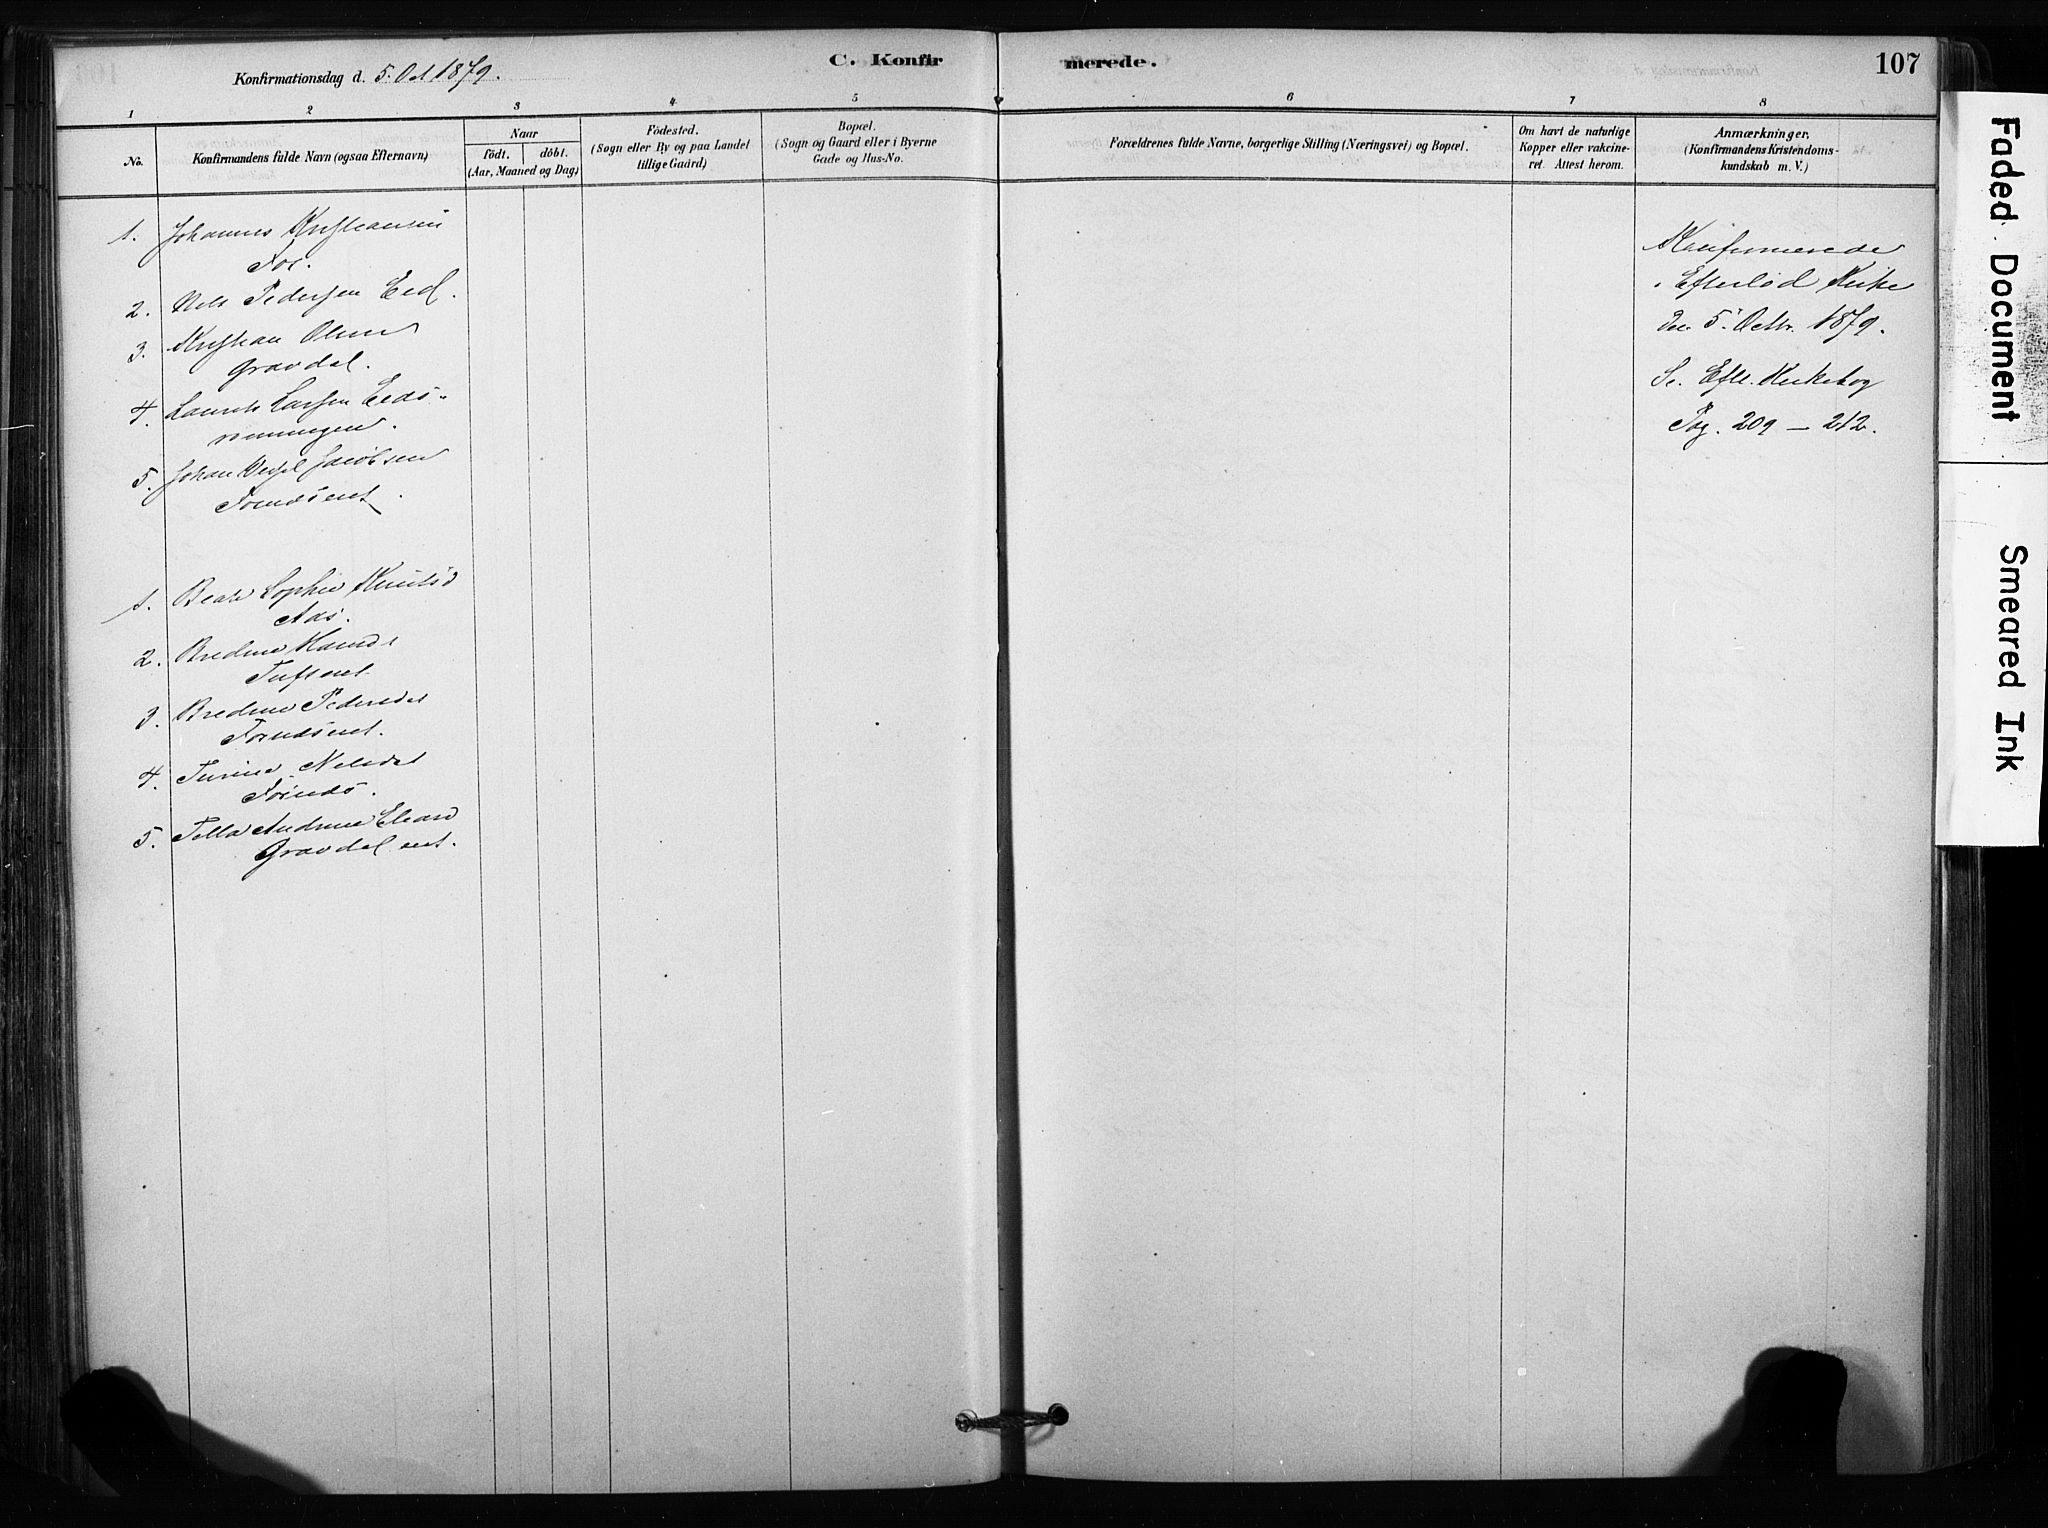 C. Konfirmerede.
107
Konfirmationsdag d. 5. Oct 1879.
1 2 3 4 5 6 7 8
No.
Konfirmandens fulde Navn (ogsaa Efternavn)
Naar
födt. döbt.
(Aar, Maaned og Dag)
Födested.
(Sogn eller By og paa Landet
tillige Gaard)
Bopæl.
(Sogn og Gaard eller i Byerne
Gade og Hus-No.
Forældrenes fulde Navne, borgerlige Stilling (Næringsvei) og Bopæl.
Om havt de naturlige
Kopper eller vakcine-
ret. Attest herom.
Anmærkninger.
(Konfirmandens Kristendoms-
kundskab m. V.)
1. Johannes Kristiansen
Foss.
2. Nels Pedersen Eid.
3. Kristian Olsen
Gravdal.
4. Laurits Larsen Eids-
5. Johan Jacobsen
1. Beate Sophie Knutsd
Aas.
2. Bredine
3. Bredine Pedersdat
4. Nelsdat
5. Andrine
Gravdal eiet.
Konfirmerede
i Eftelød Kirke
den 5. Octbr. 1879.
Se Eftl. Kirkebog
Pag. 209 — 212.
Faded Document
Smeared Ink